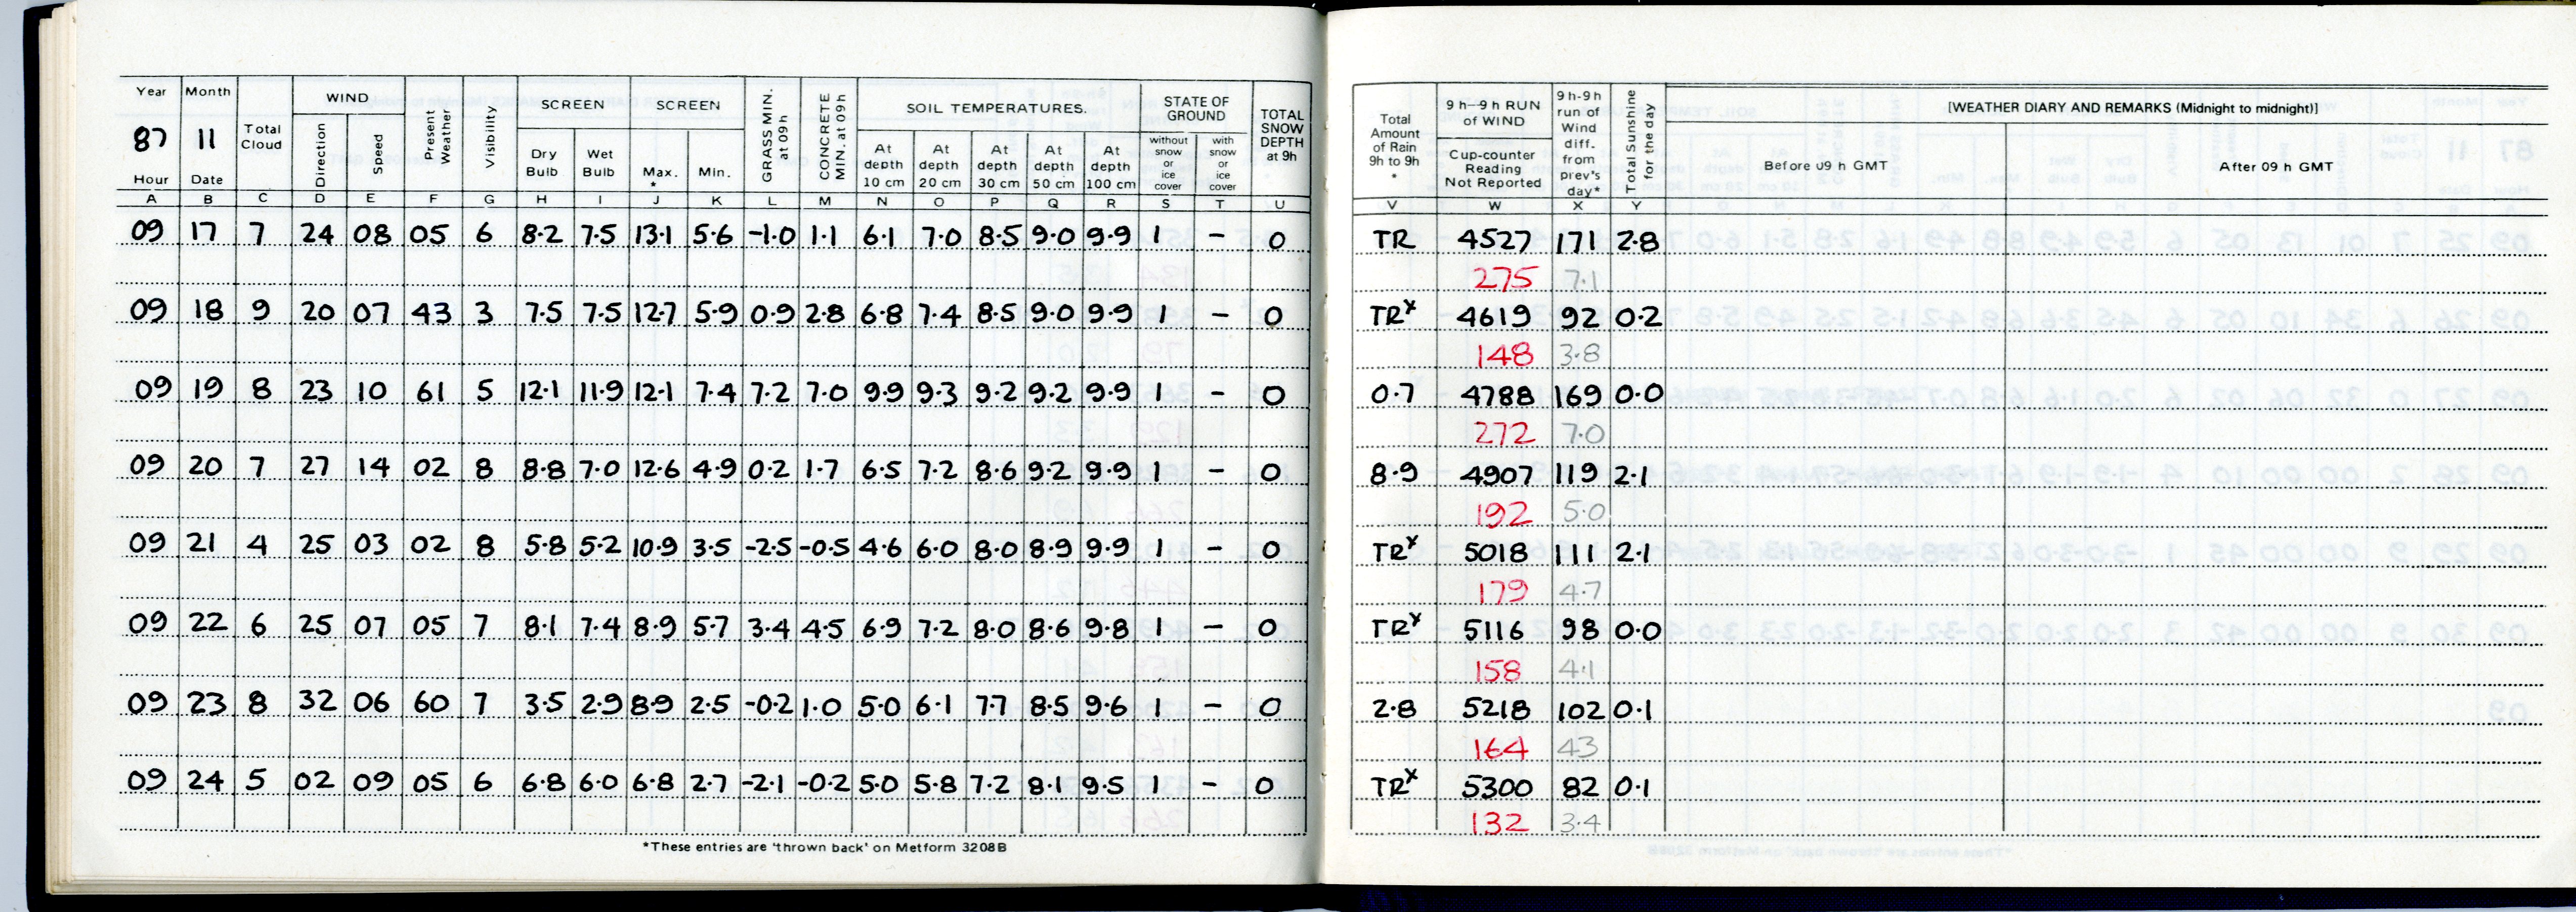 Year Month Total Cloud WIND Present Weather Visibility SCREEN SCREEN GRASS MIN. at 09h CONCRETE MIN. at 09h SOIL TEMPERATURES. STATE OF GROUND TOTAL SNOW DEPTH at 9h
87 11 Direction Speed Dry Bulb Wet Bulb Max. * Min. At depth 10 cm At depth 20 cm At depth 30 cm At depth 50 cm At depth 100 cm without snow or ice cover with snow or ice cover
Hour Date
A B C D E F G H I J K L M N O P Q R S T U
09 17 7 24 08 05 6 8.2 7.5 13.1 5.6 -1.0 1.1 6.1 7.0 8.5 9.0 9.9 1 – 0
09 18 9 20 07 43 3 7.5 7.5 12.7 5.9 0.9 2.8 6.8 7.4 8.5 9.0 9.9 1 – 0
09 19 8 23 10 61 5 12.1 11.9 12.1 7.4 7.2 7.0 9.9 9.3 9.2 9.2 9.9 1 – 0
09 20 7 27 14 02 8 8.8 7.0 12.6 4.9 0.2 1.7 6.5 7.2 8.6 9.2 9.9 1 – 0
09 21 4 25 03 02 8 5.8 5.2 10.9 3.5 -2.5 -0.5 4.6 6.0 8.0 8.9 9.9 1 – 0
09 22 6 25 07 05 7 8.1 7.4 8.9 5.7 3.4 4.5 6.9 7.2 8.0 8.6 9.8 1 – 0
09 23 8 32 06 60 7 3.5 2.9 8.9 2.5 -0.2 1.0 5.0 6.1 7.7 8.5 9.6 1 – 0
09 24 5 02 09 05 6 6.8 6.0 6.8 2.7 -2.1 -0.2 5.0 5.8 7.2 8.1 9.5 1 – 0
*These entries are 'thrown back' on Metform 3208B
Total Amount of Rain 9h to 9h * 9 h–9 h RUN of WIND 9 h-9h run of Wind diff. from prev's day* Total Sunshine for the day [WEATHER DIARY AND REMARKS (Midnight to midnight)]
Cup-counter Reading Not Reported Before 09 h GMT After 09 h GMT
V W X Y
TR 4527 171 2.8
275 7.1
TRx 4619 92 0.2
148 3.8
0.7 4788 169 0.0
272 7.0
8.9 4907 119 2.1
192 5.0
TRx 5018 111 2.1
179 4.7
TRx 5116 98 0.0
158 4.1
2.8 5218 102 0.1
164 43
TRx 5300 82 0.1
132 3.4